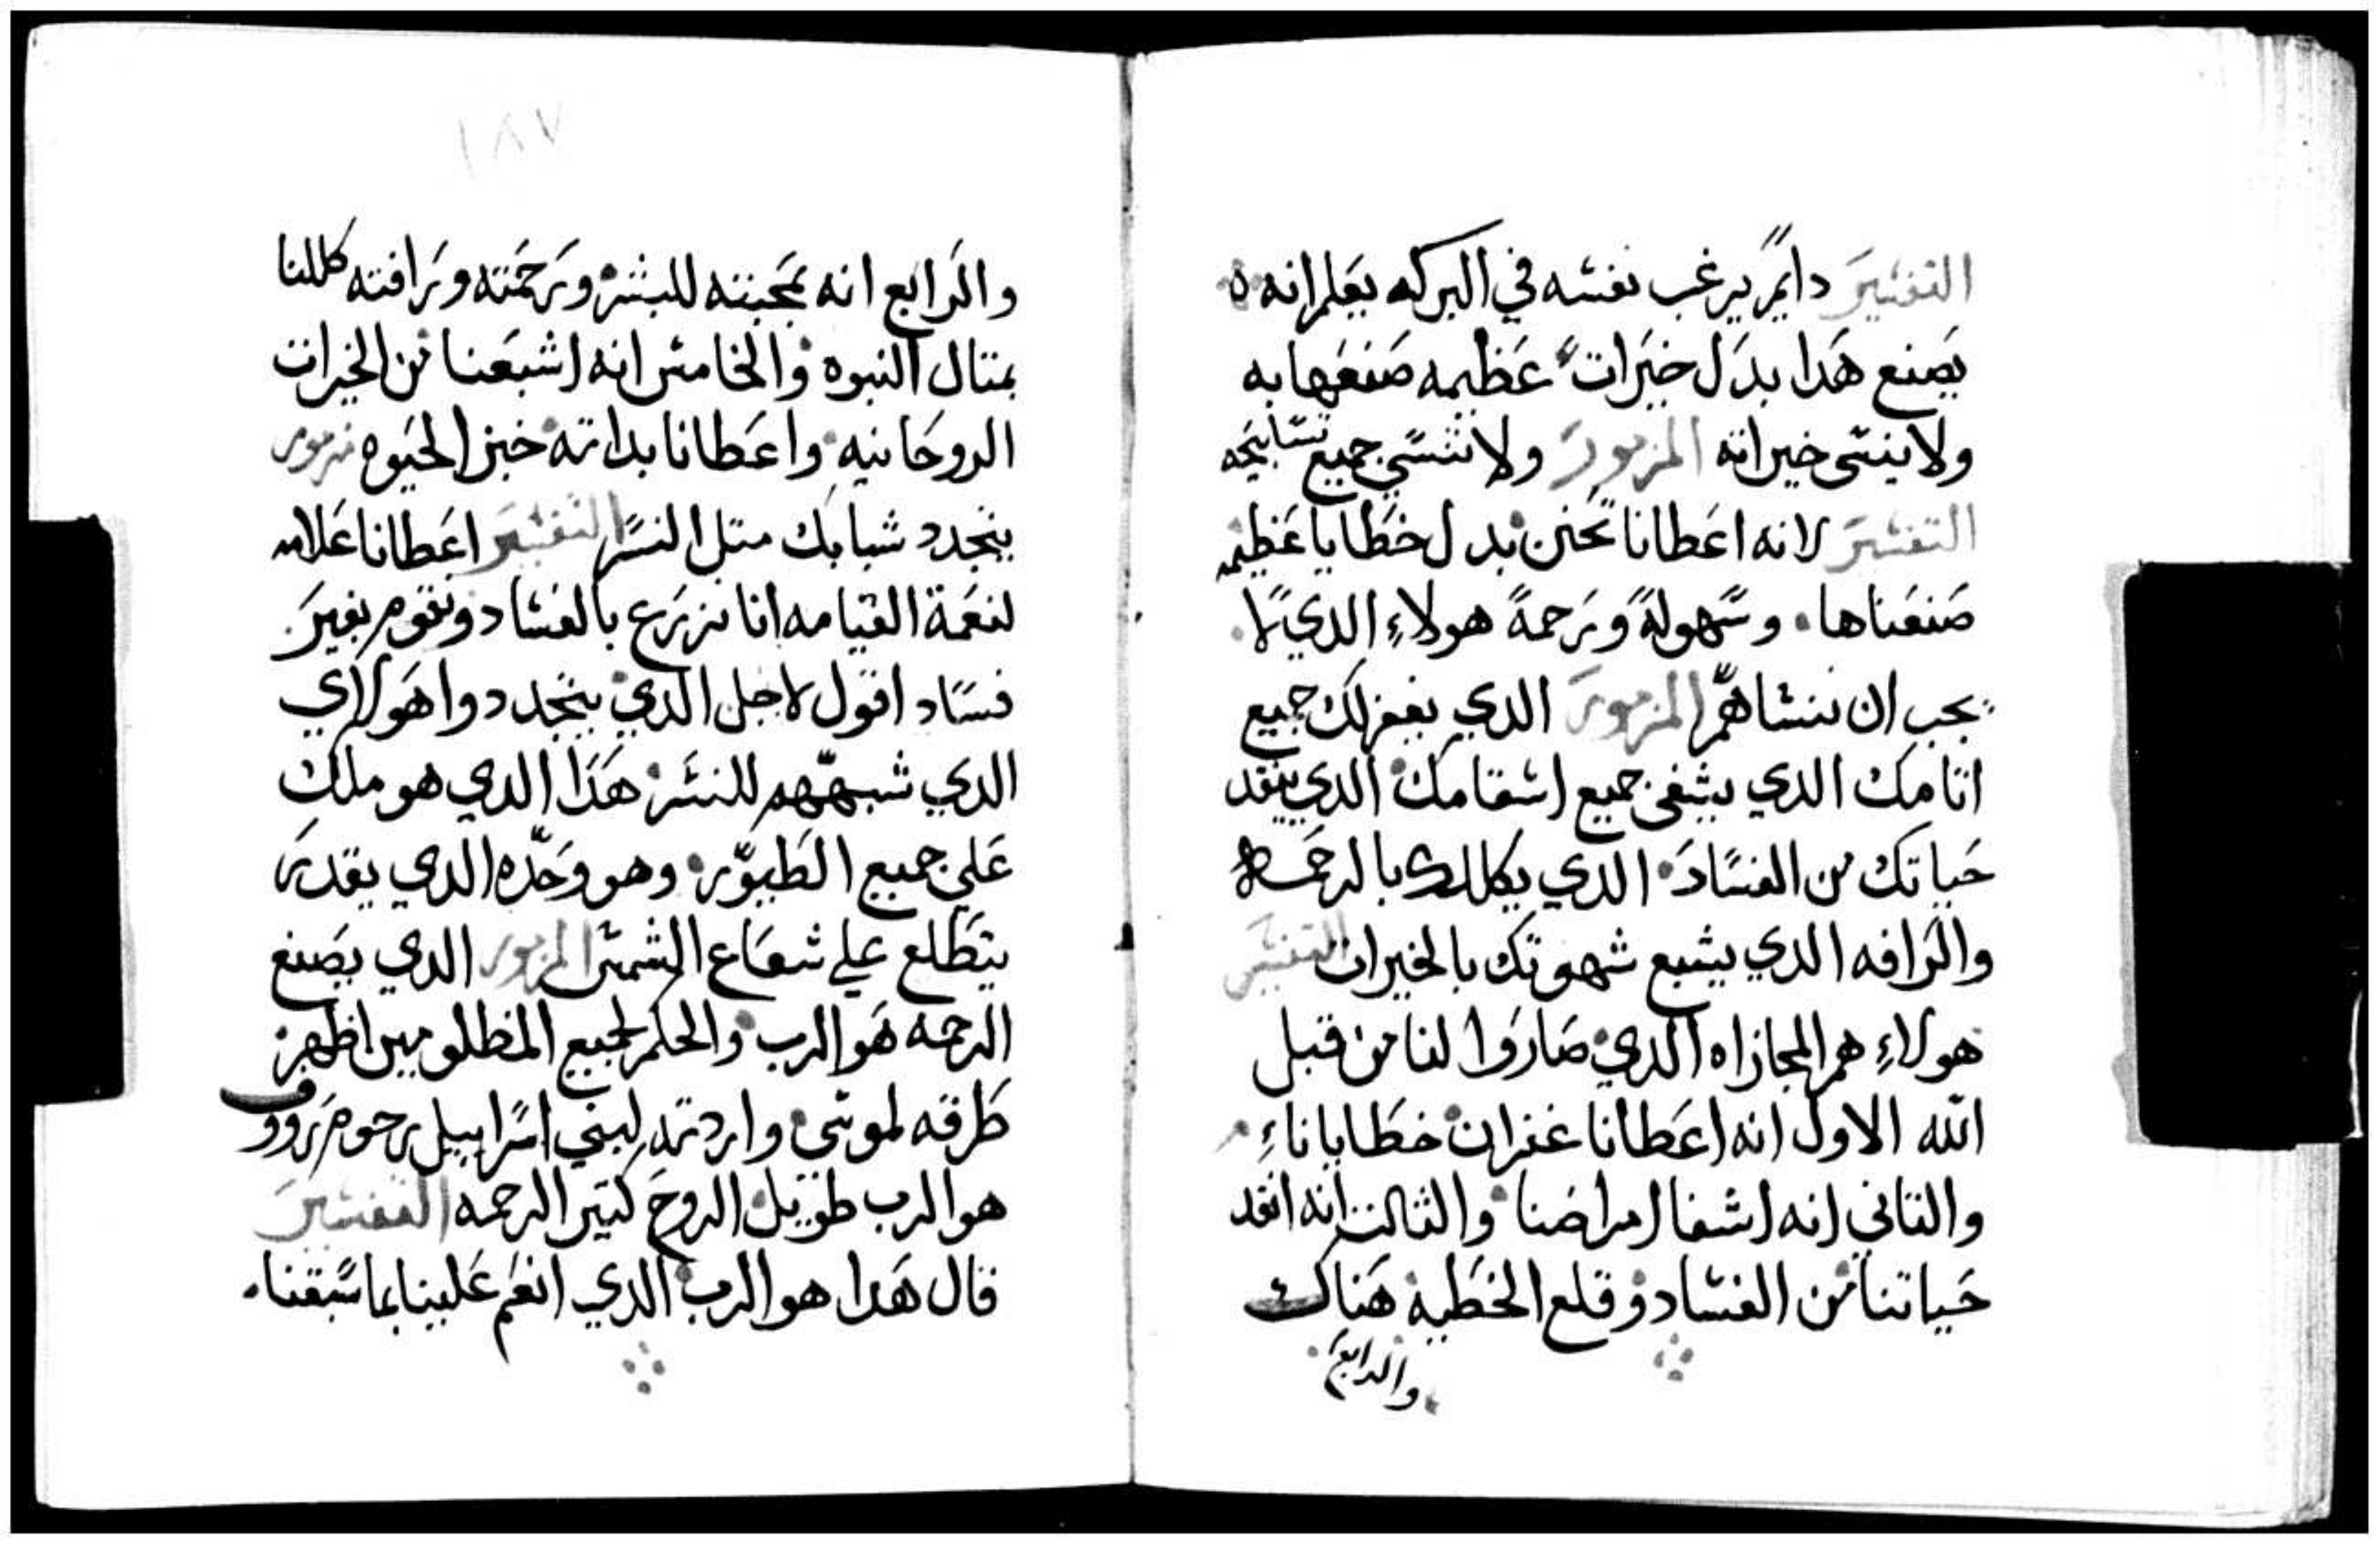 التفسير دايمً يرغب نفسه في البركه يعلم انه
يصنع هدا بدل خيرات عظيمه صنعها به
ولا ينسى خيراته المزمور ولا تنسي جميع تسابيحه
التفسير لانه اعطانا نحنن بدل خطايا عظيمه
صنعناها وسهولةً ورحمةً هولاءِ الدي لا
يجب ان ننساهمّ المزمور الدي يغفر لك جميع
اتامك الدي يشفى جميع اسقامك الدي ينقد
حياتك من الفساد الدي يكللك بالرحمه
والرافه الدي يشبع شهوتك بالخيرات التفسير
هولاءِ هم المجازاه الدي صاروا لنا من قبل
الله الاول انه اعطانا غفران خطايانا
والتاني انه اشفا امراضنا والثالت انه انقد
حياتنا من الفساد وقلع الخطيه هناك
والرابع
١٨٧
والرابع انه بمحبته للبشر ورحمته ورافته كللنا
بمتال النبوه والخامس انه اشبعنا من الخيرات
الروحانيه واعطانا بداته خبز الحيوه مزمور
يتجدد شبابك متل النسر التفسير اعطانا علامه
لنعمة القيامه انا نزرع بالفساد ونقوم بغير
فساد اقول لاجل الدي يتجددوا هولاي
الدي شبههم للنسر هدا الدي هو ملك
علي جميع الطيور وهو وحده الدي يقدر
يتطلع علي شعاع الشمس المزمور الدي يصنع
الرحمه هو الرب والحكم لجميع المظلومين اظهر
طرقه لموسى وارادته لبني اسراييل رحوم رووف
هو الرب طويل الروح كتير الرحمه التفسير
قال هدا هو الرب الدي انعم علينا بما سبقنا